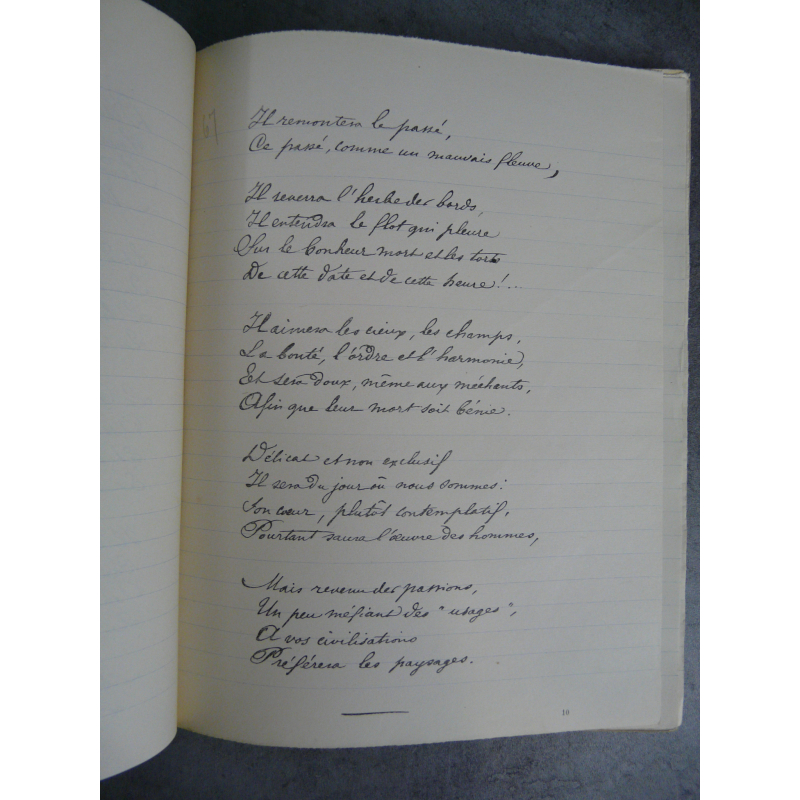 67
Il remontera le passé,
Ce passé, comme un mauvais fleuve,
Il reverra l'herbe des bords,
Il entendra le flot qui pleure
Sur le bonheur mort et les torts
De cette date et de cette heure!...
Il aimera les cieux, les champs,
La bonté, l'ordre et l'harmonie,
Et sera doux, même aux méchants,
Afin que leur mort soit bénie.
Délicat et non exclusif
Il sera du jour où nous sommes:
Son cœur, plutôt contemplatif,
Pourtant saura l'œuvre des hommes,
Mais revenu des passions,
Un peu méfiant des "usages",
A vos civilisations
Préférera les paysages.
10